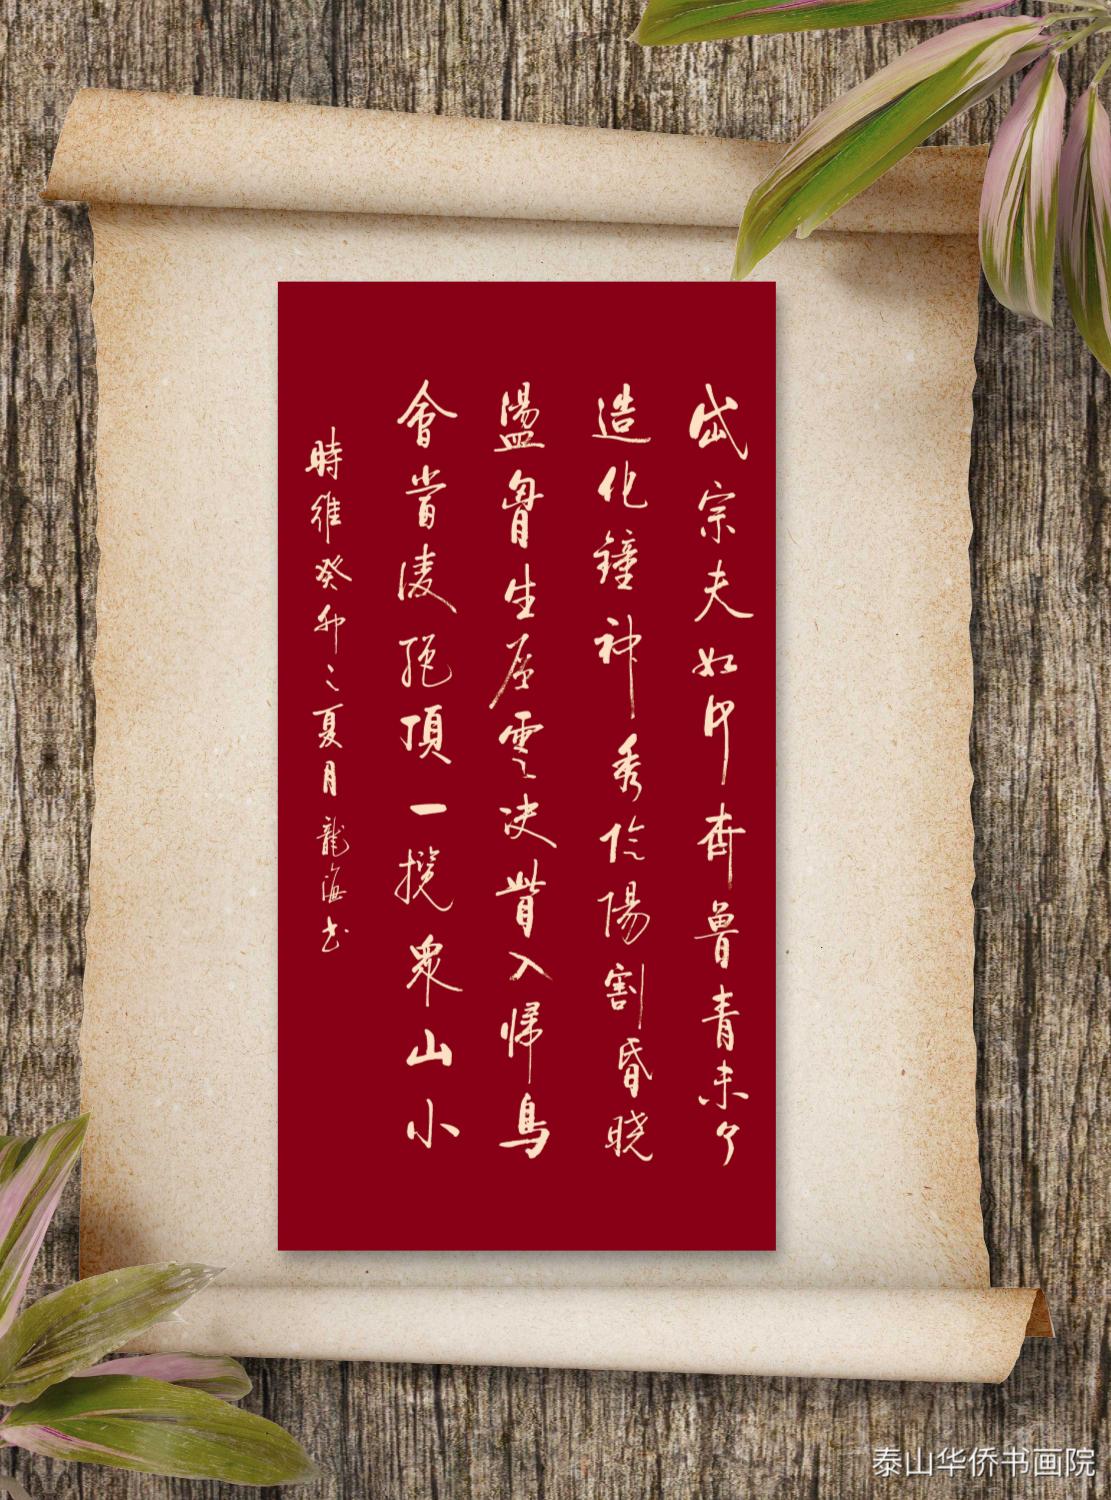 岱宗夫如何齐魯青未了
造化鐘神秀陰陽割昏晓
盪胷生层雲决眥入帰鳥
會當凌絶頂一揽眾山小
時維癸卯之夏月龍海书
泰山华侨书画院